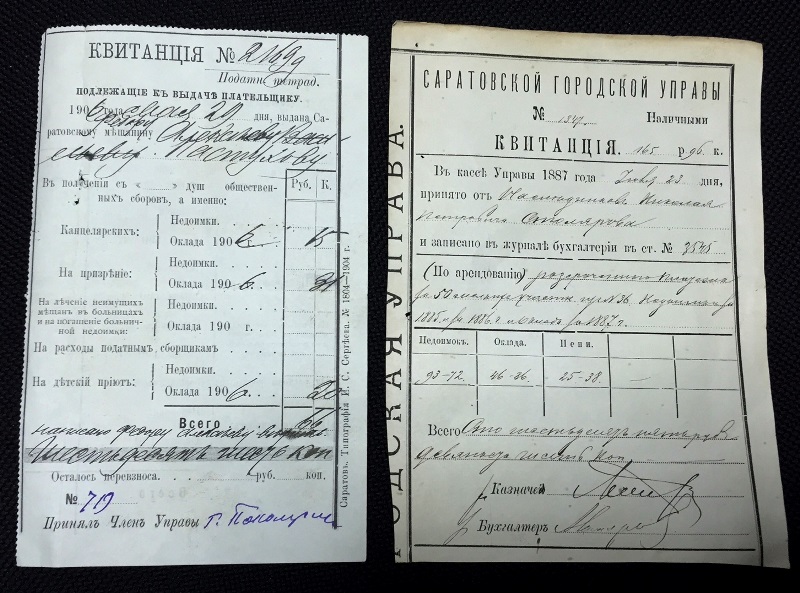 КВИТАНЦІЯ № 21699
Податн. тетрад.
ПОДЛЕЖАЩІЕ КЪ ВЫДАЧѢ ПЛАТЕЛЬЩИКУ.
1906 года 20 дня, выдана Са-
ратовскому мѣщанину
Пастухову
Въ полученіи съ „ “ душ обществен-
ныхъ сборовъ, а именно:
Руб. К.
Канцелярскихъ:
Недоимки.
Оклада 1906 г. 15
На призрѣніе:
Недоимки.
Оклада 1906 г. 31
На лѣченіе неимущихъ
мѣщанъ въ больницахъ
и на погашеніе больнич-
ной недоимки:
Недоимки.
Оклада 190 г.
На расходы податнымъ сборщикамъ
На дѣтскій пріютъ:
Недоимки.
Оклада 1906 г. 20
Всего 66
шестьдесятъ шесть коп
Осталось перевзноса. руб. коп.
№ 719
Принялъ Членъ Управы
Саратовъ. Типографія И. С. Сергѣева. № 1804—1904 г.
ГОРОДСКАЯ УПРАВА.
САРАТОВСКОЙ ГОРОДСКОЙ УПРАВЫ
№ Наличными
КВИТАНЦІЯ. 165 р 96 к.
Въ кассѣ Управы 1887 года 23 дня,
принято отъ Наслѣдниковъ Николая
Петровича Столярова
и записано въ журналѣ бухгалтеріи въ ст. № 3545
(По арендованію)
за 50 участк. № 36
1885 1886 г. 1887 г.
Недоимокъ. Оклада. Пени.
93-72. 46-86. 25-38. —
Всего Сто шестьдесятъ пять руб
девяносто шесть коп
Казначей
Бухгалтеръ